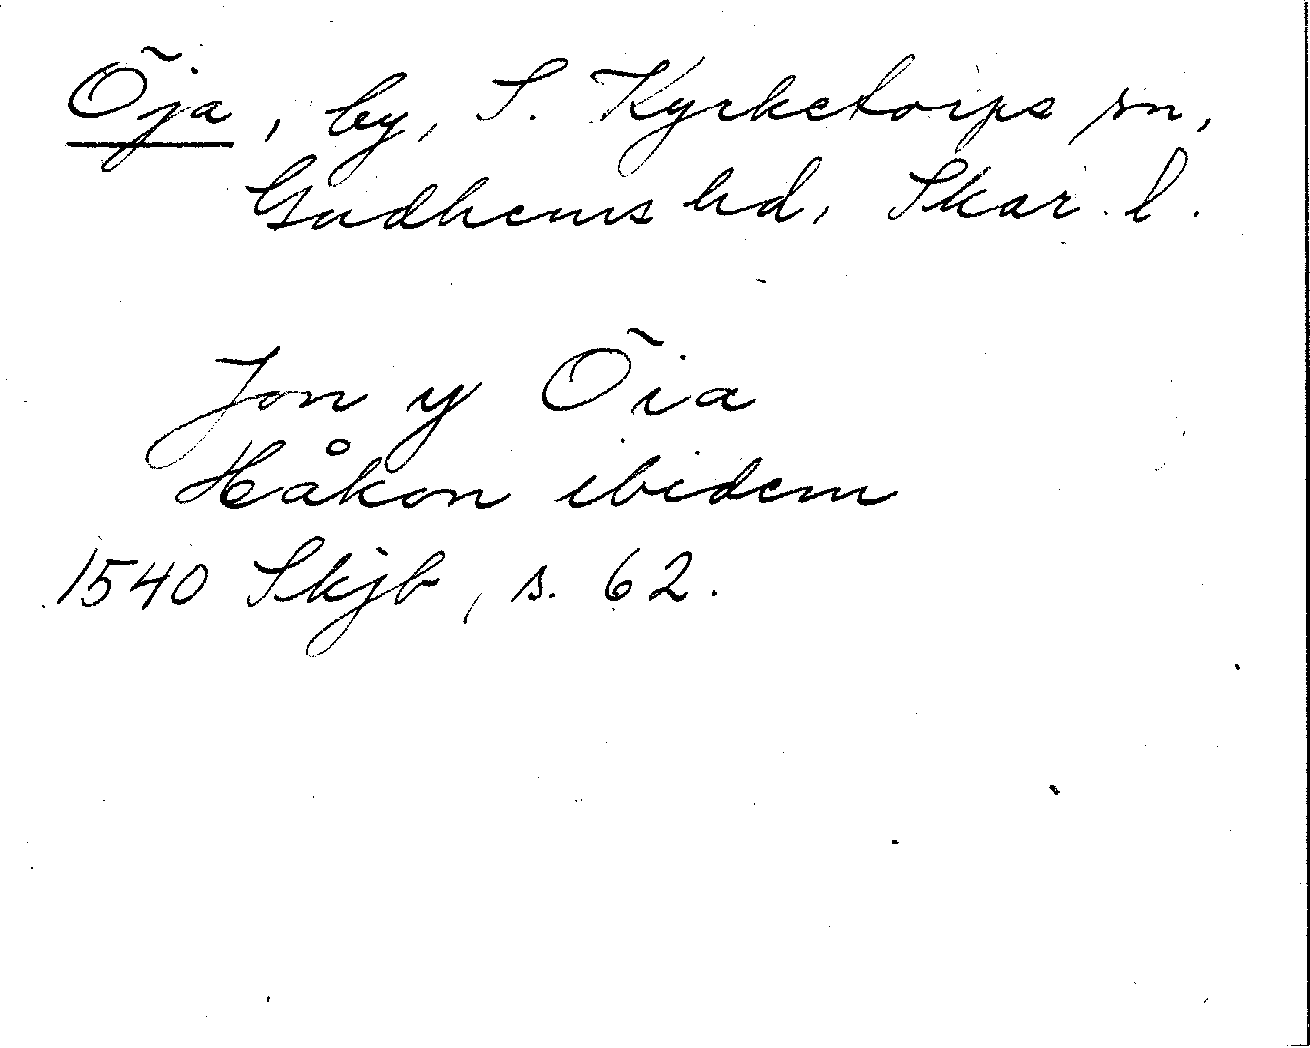 Öja, by, S. Kyrketorps sn,
Gudhems hd, Skar. l.
Jon y Öia
Håkon ibidem
1540 Skjb, s. 62.